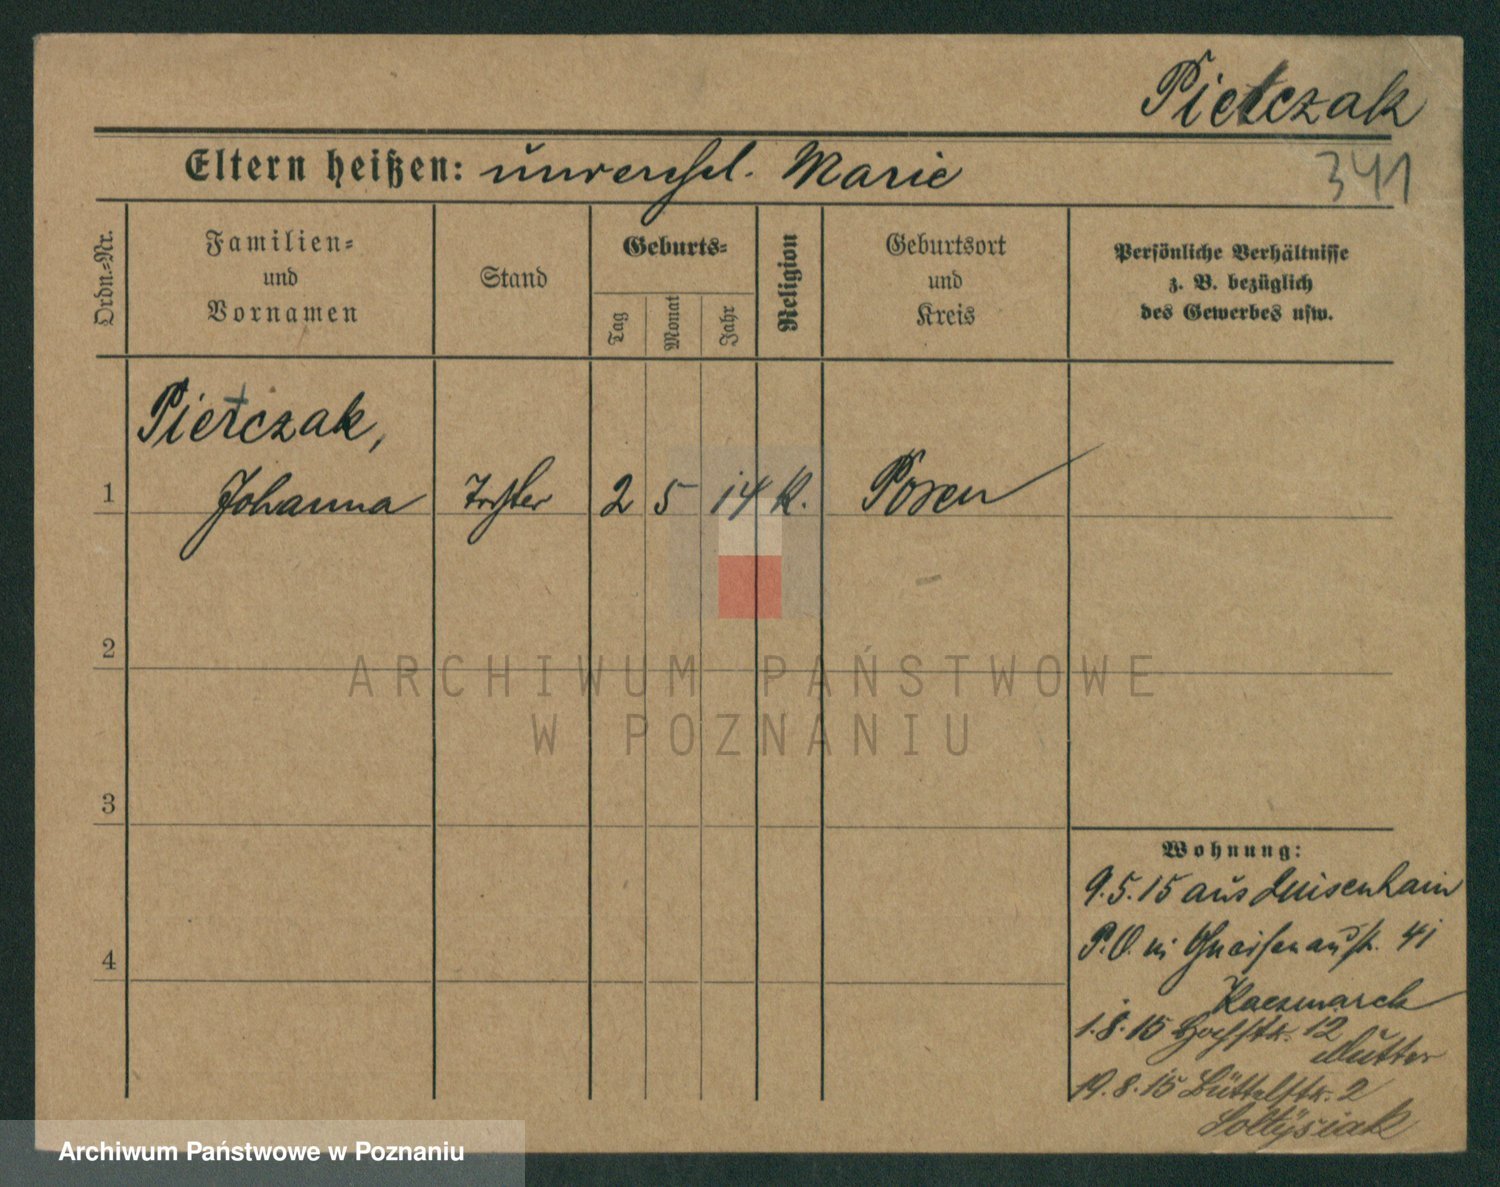 Pietczak
341
Eltern heißen: unverehel. Marie
Ordn.=Nr.
Familien=
und
Vornamen
Stand
Geburts=
Tag
Monat
Jahr
Religion
Geburtsort
und
Kreis
Persönliche Verhältnisse
z. B. bezüglich
des Gewerbes usw.
Pietczak,
1 Johanna Tochter 2 5 14 K. Posen
2
3
4
Wohnung:
9.5.15 aus Luisenhain
P.O. in Gneisenaustr. 41
Kaczmarek
1.8.15 12
Mutter
19.8.15 Büttelstr. 2
Soltysiak
ARCHIWUM PAŃSTWOWE
W POZNANIU
Archiwum Państwowe w Poznaniu